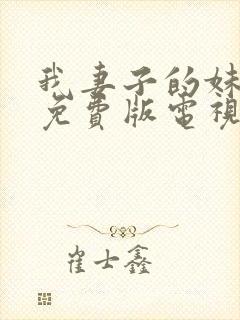 我妻子的妹
免費版電視
崔士鑫